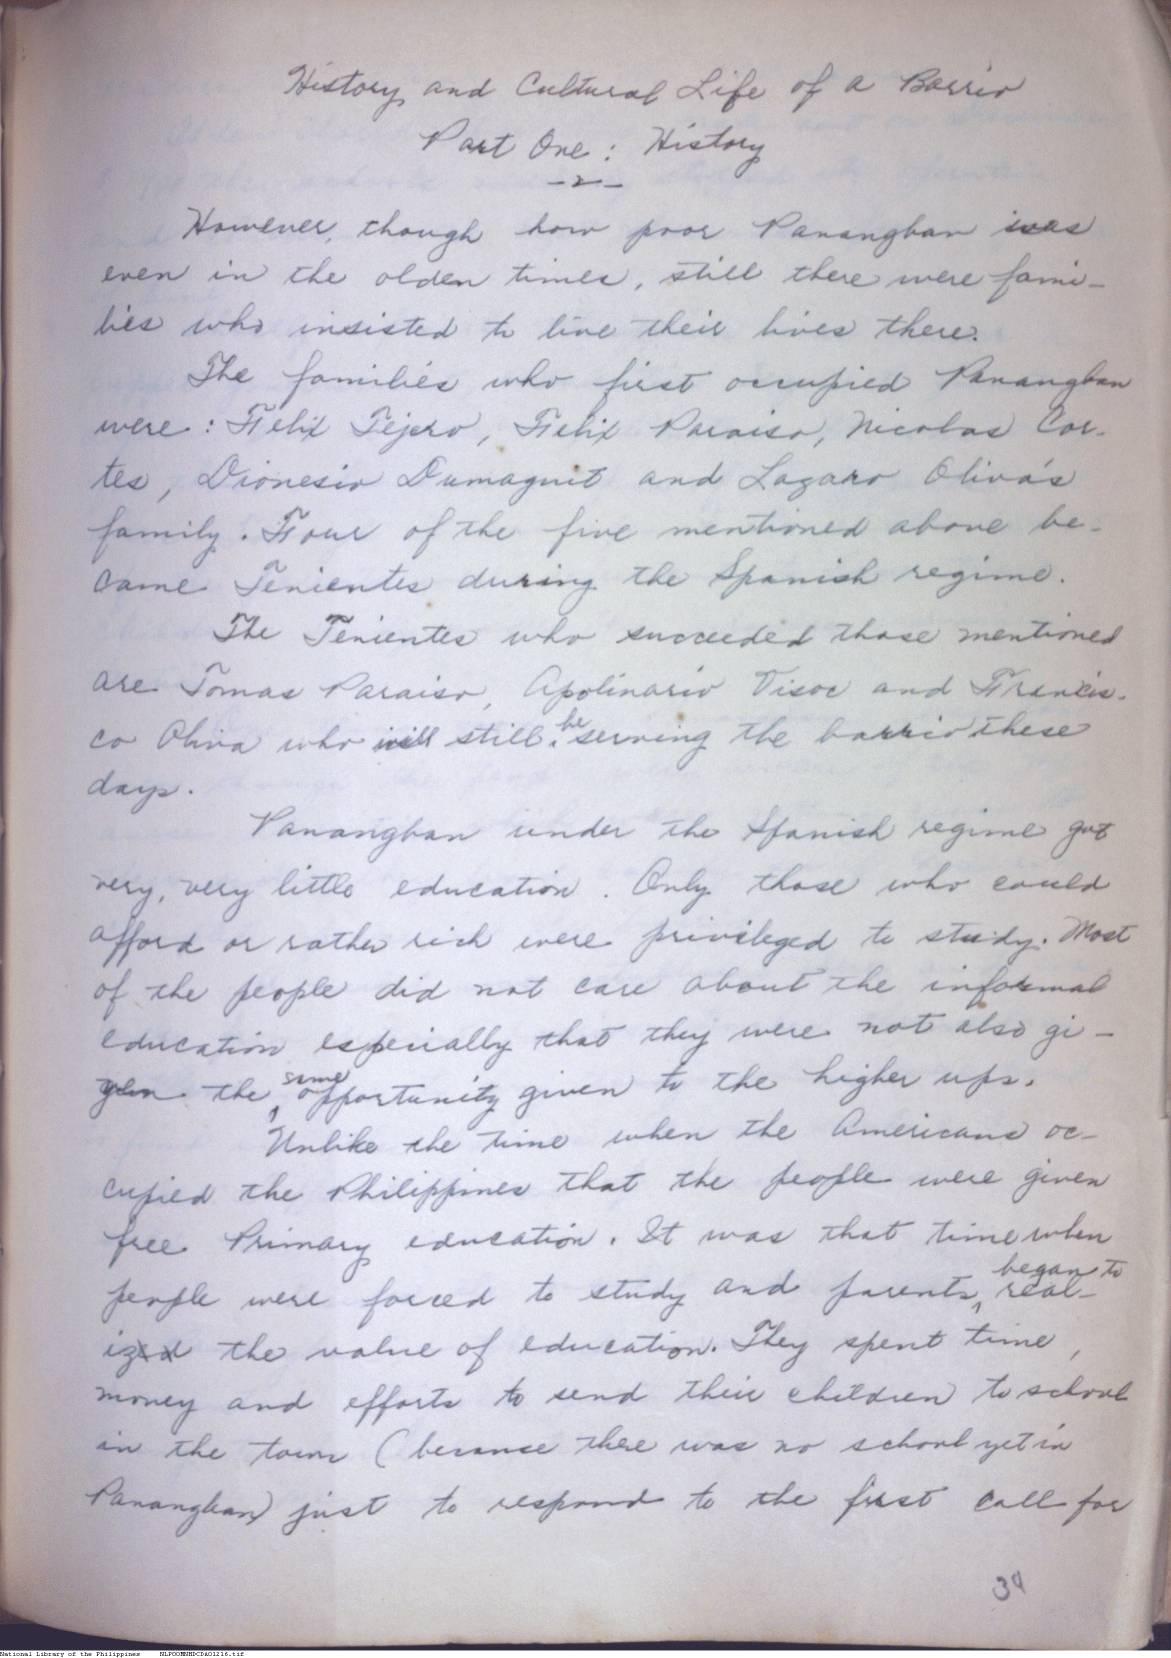 History and Cultural Life of a Barrio
Part One: History
-2-
However, though how poor Panangban was
even in the olden times, still there were fami-
lies who insisted to live their lives there.
The families who first occupied Panangban
were: Felix Tejero, Felix Paraiso, Nicolas Cor-
tes, Dionesio Dumaguit and Lazaro Oliva's
family. Four of the five mentioned above be-
came Tenientes during the Spanish regime.
The Tenientes who succeeded those mentioned
are Tomas Paraiso, Apolinario Visoc and Francis-
co Oliva who will still be serving the barrio these
days.
Panangban under the Spanish regime got
very, very little education. Only those who could
afford or rather rich were privileged to study. Most
of the people did not care about the informal
education especially that they were not also gi-
ven the same opportunity given to the higher ups.
Unlike the time when the Americans oc-
cupied the Philippines that the people were given
free Primary education. It was that time when
people were forced to study and parents began to real-
ize the value of education. They spent time,
money and efforts to send their children to school
in the town (because there was no school yet in
Panangban) just to respond to the first call for
34
National Library of the Philippines NLPOOMNHDCDA01216.tif